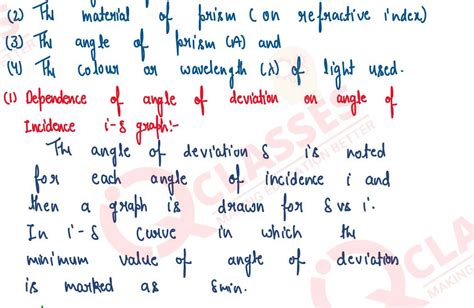 (2) The material of prism (on refractive index)
(3) The angle of prism (A) and
(4) The colour or wavelength (λ) of light used.
(1) Dependence of angle of deviation on angle of
Incidence i-δ graph:-
The angle of deviation δ is noted
for each angle of incidence i and
then a graph is drawn for δ vs i.
In i-δ curve in which the
minimum value of angle of deviation
is marked as δmin.
CLASSES
MAKING EDUCATION BETTER
CLASSES
MAKING